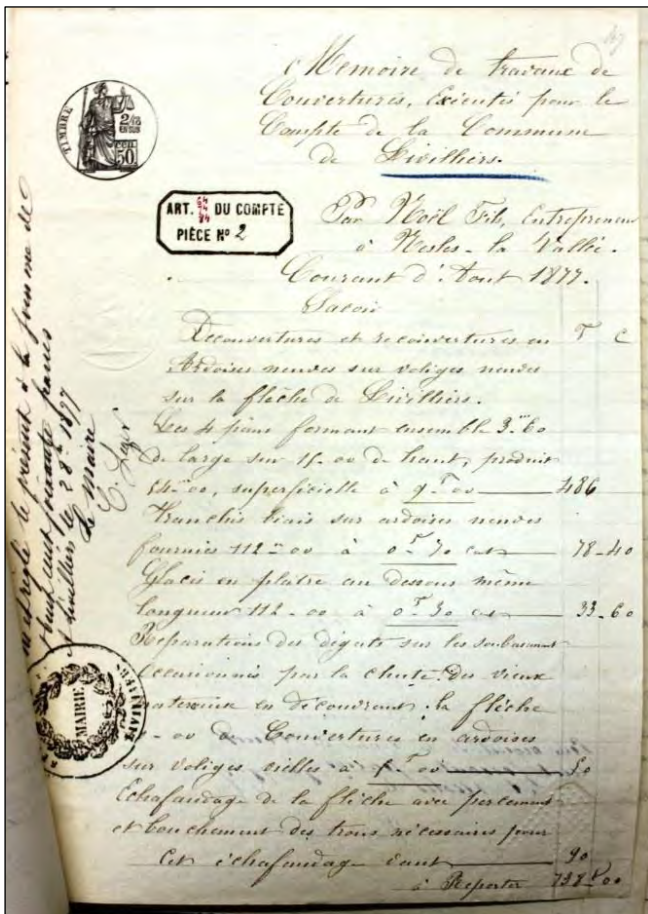 Memoire de travaux de
Couvertures, Exécutés pour le
Compte de la Commune
de Livilliers.
TIMBRE
2/10 EN SUS
50
ART. DU COMPTE
PIÈCE Nº 2
Par Noël Fils, Entrepreneur
à Nesles-la Vallée.
Courant d'Aout 1877.
Savoir
F C
Decouvertures et recouvertures en
Ardoises neuves sur voliges neuves
sur la flèche de Livilliers.
Les 4 pans formant ensemble 3m60
de large sur 15-00 de haut, produit
54m00, superficielle à 9F00 486
Tranchis biais sur ardoises neuves
fournies 112m00 à 0F70 78-40
Glacis en plâtre au dessous même
longueur 112-00 à 0F30 33-60
Réparations des dégats sur les
occasionnés par la chute des vieux
materiaux en découvrant la flèche
-00 de Couvertures en ardoises
sur voliges vielles à 50
Echafaudage de la flèche avec percement
et bouchement des trous nécessaires pour
cet échafaudage vaut 90
à Reporter 738F00
le présent à la somme de
huit cent soixante francs
Livilliers le 28 1877
Le Maire
C. Leger
MAIRIE